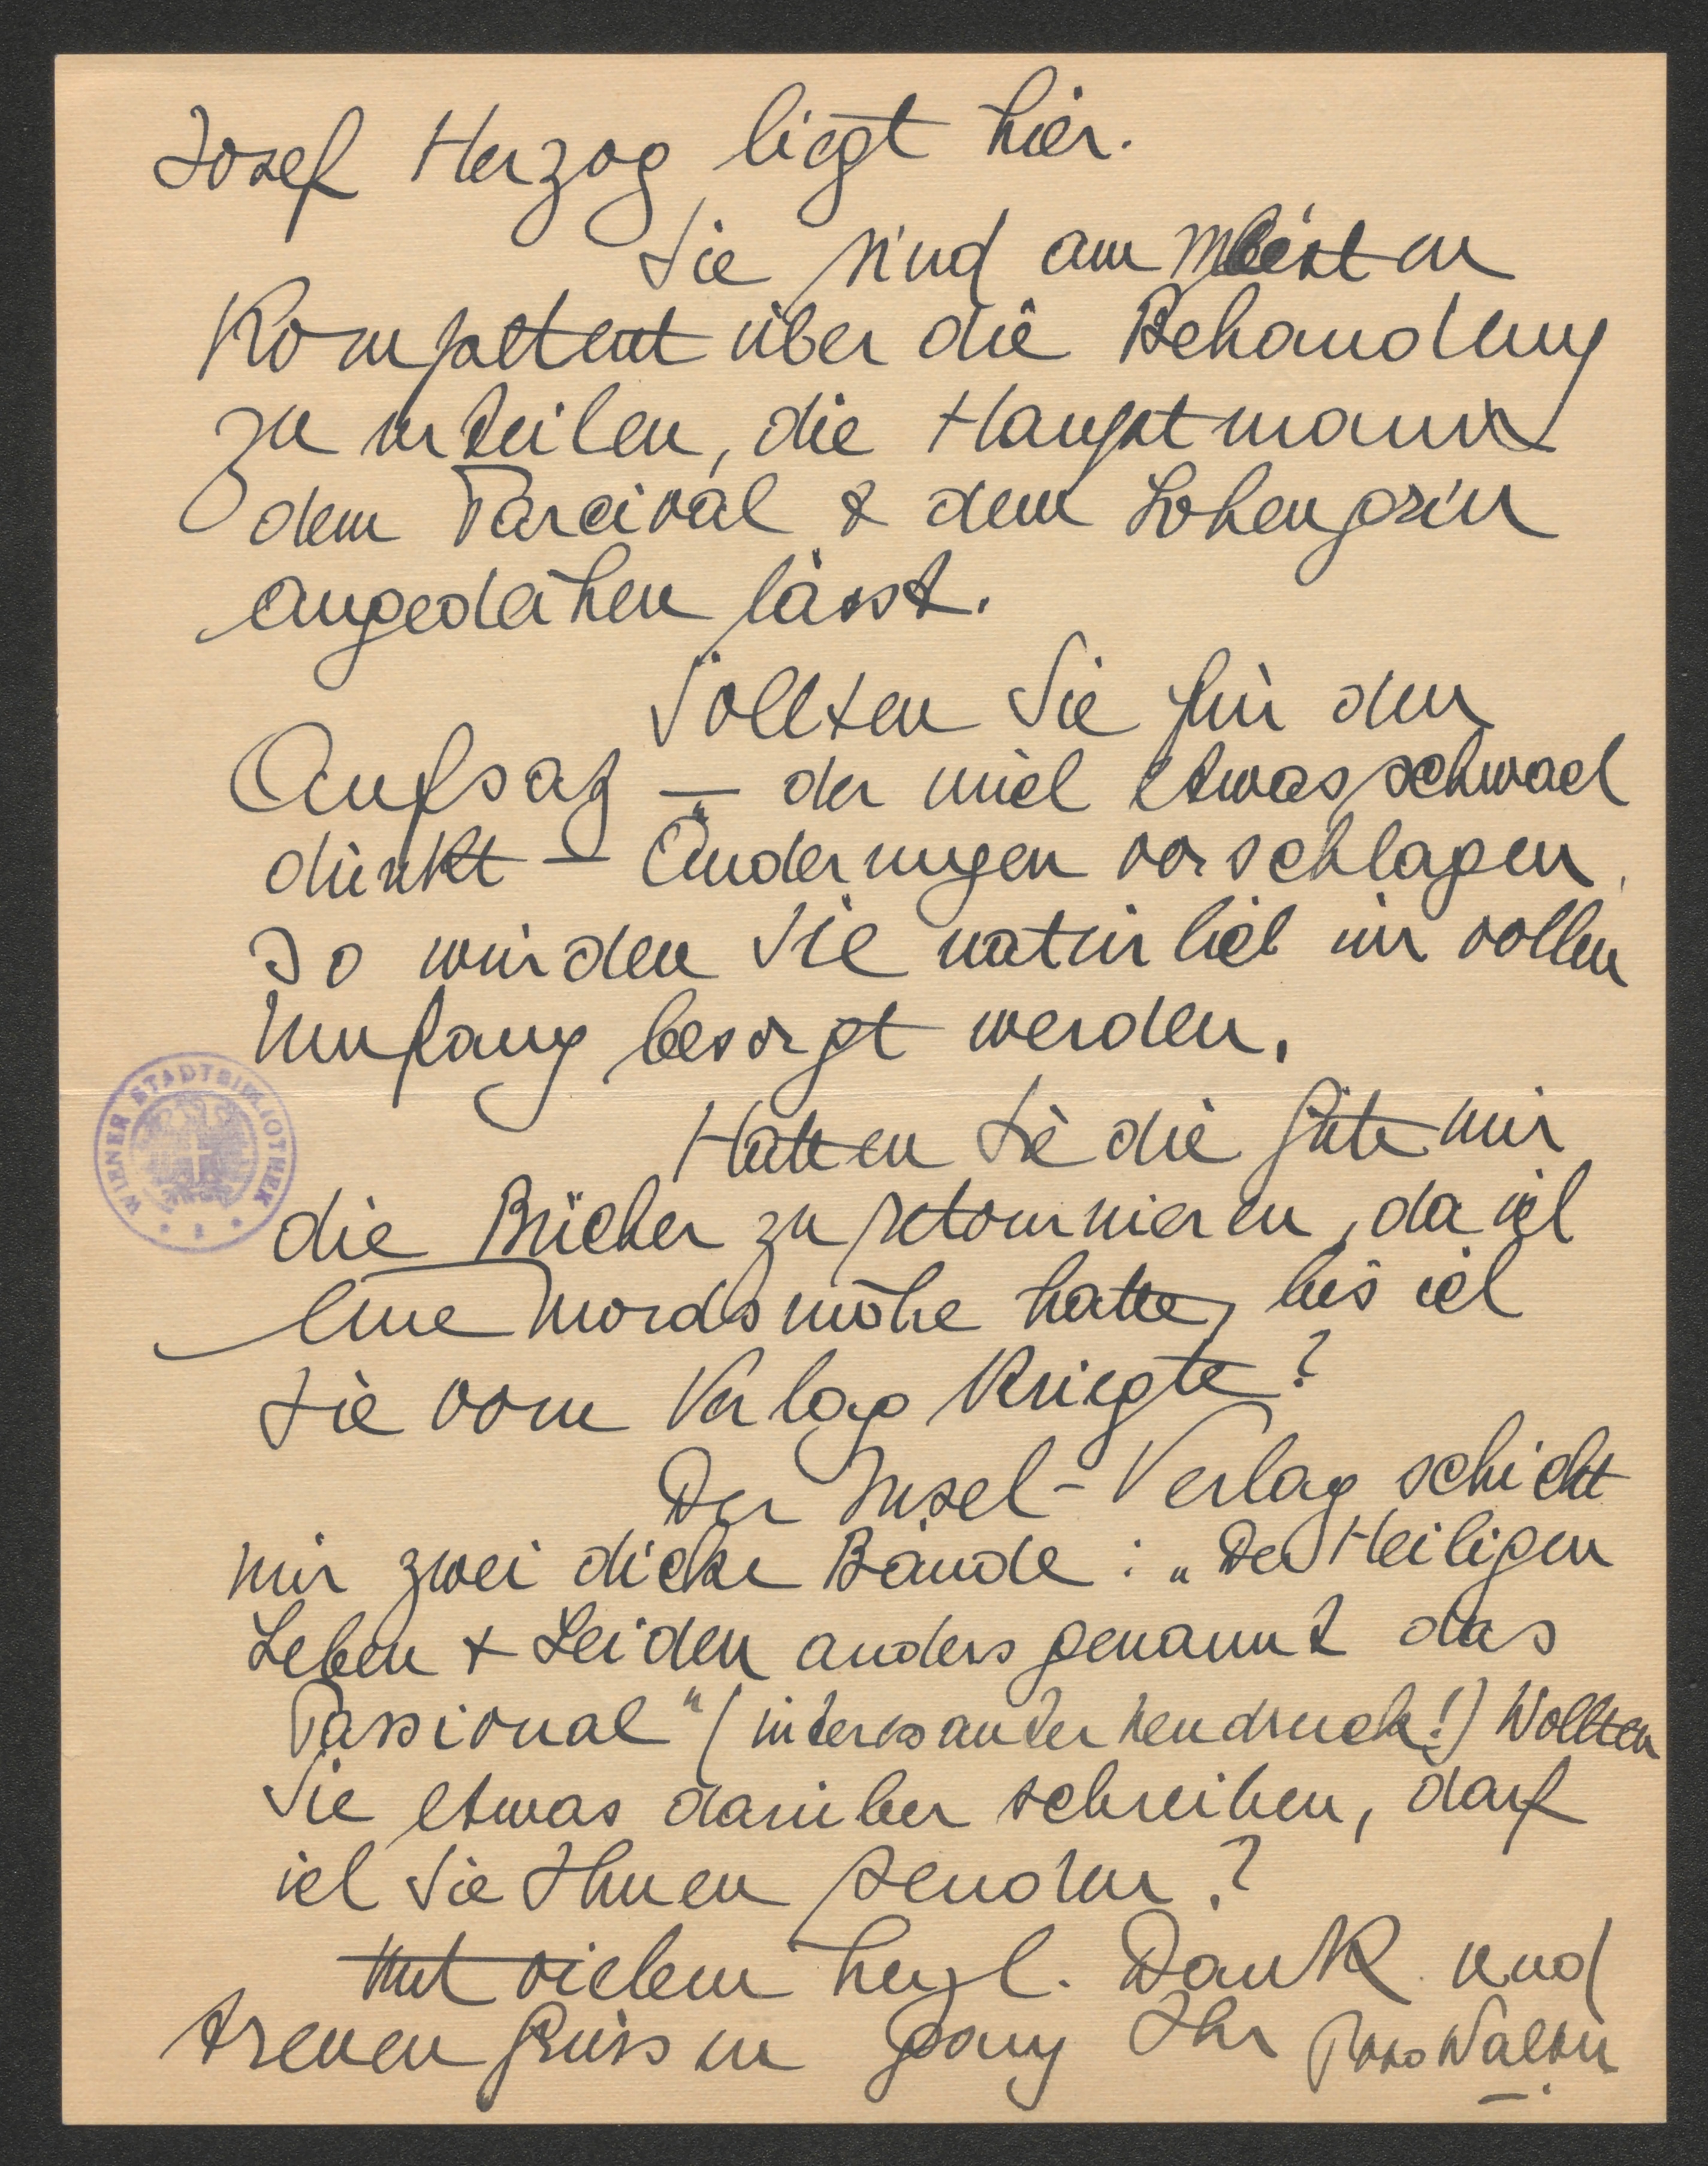 Josef Herzog liegt hier.
Sie sind am meisten
Kompetent über die Behandlung
zu urteilen, die Hauptmann
dem Parcival & dem Lohengrin
angedeihen lässt.
Sollten Sie für den
Aufsatz — der mich etwas schwach
dünkt — Änderungen vorschlagen,
so würden Sie natürlich im vollen
Umfang besorgt werden.
Hätten Sie die Güte mir
die Bücher zu retournieren, da ich
eine Mordsmühe hatte, bis ich
sie vom Verlag kriegte?
Der Insel-Verlag schickt
mir zwei dicke Bände: „Der Heiligen
Leben + Leiden anders genannt das
Passional" (interessanter Neudruck!) Wollten
Sie etwas darüber schreiben, darf
ich sie Ihnen senden?
Mit vielem herzl. Dank und
treuen Grüssen ganz Ihr
WIENER STADTBIBLIOTHEK